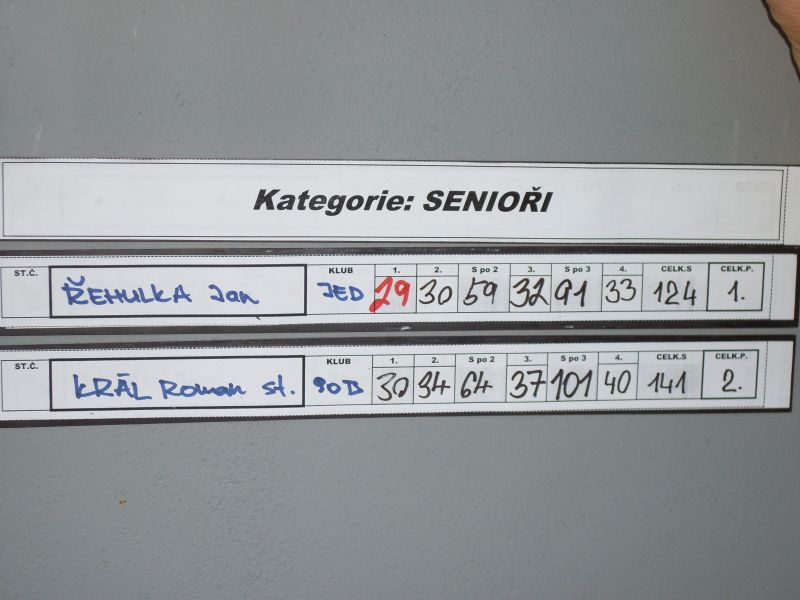 Kategorie: SENIOŘI
ST.Č. KLUB 1. 2. S po 2 3. S po 3 4. CELK.S CELK.P.
ŘEHULKA Jan JED 29 30 59 32 91 33 124 1.
ST.Č. KLUB 1. 2. S po 2 3. S po 3 4. CELK.S CELK.P.
KRÁL Roman st. 30 34 64 37 101 40 141 2.